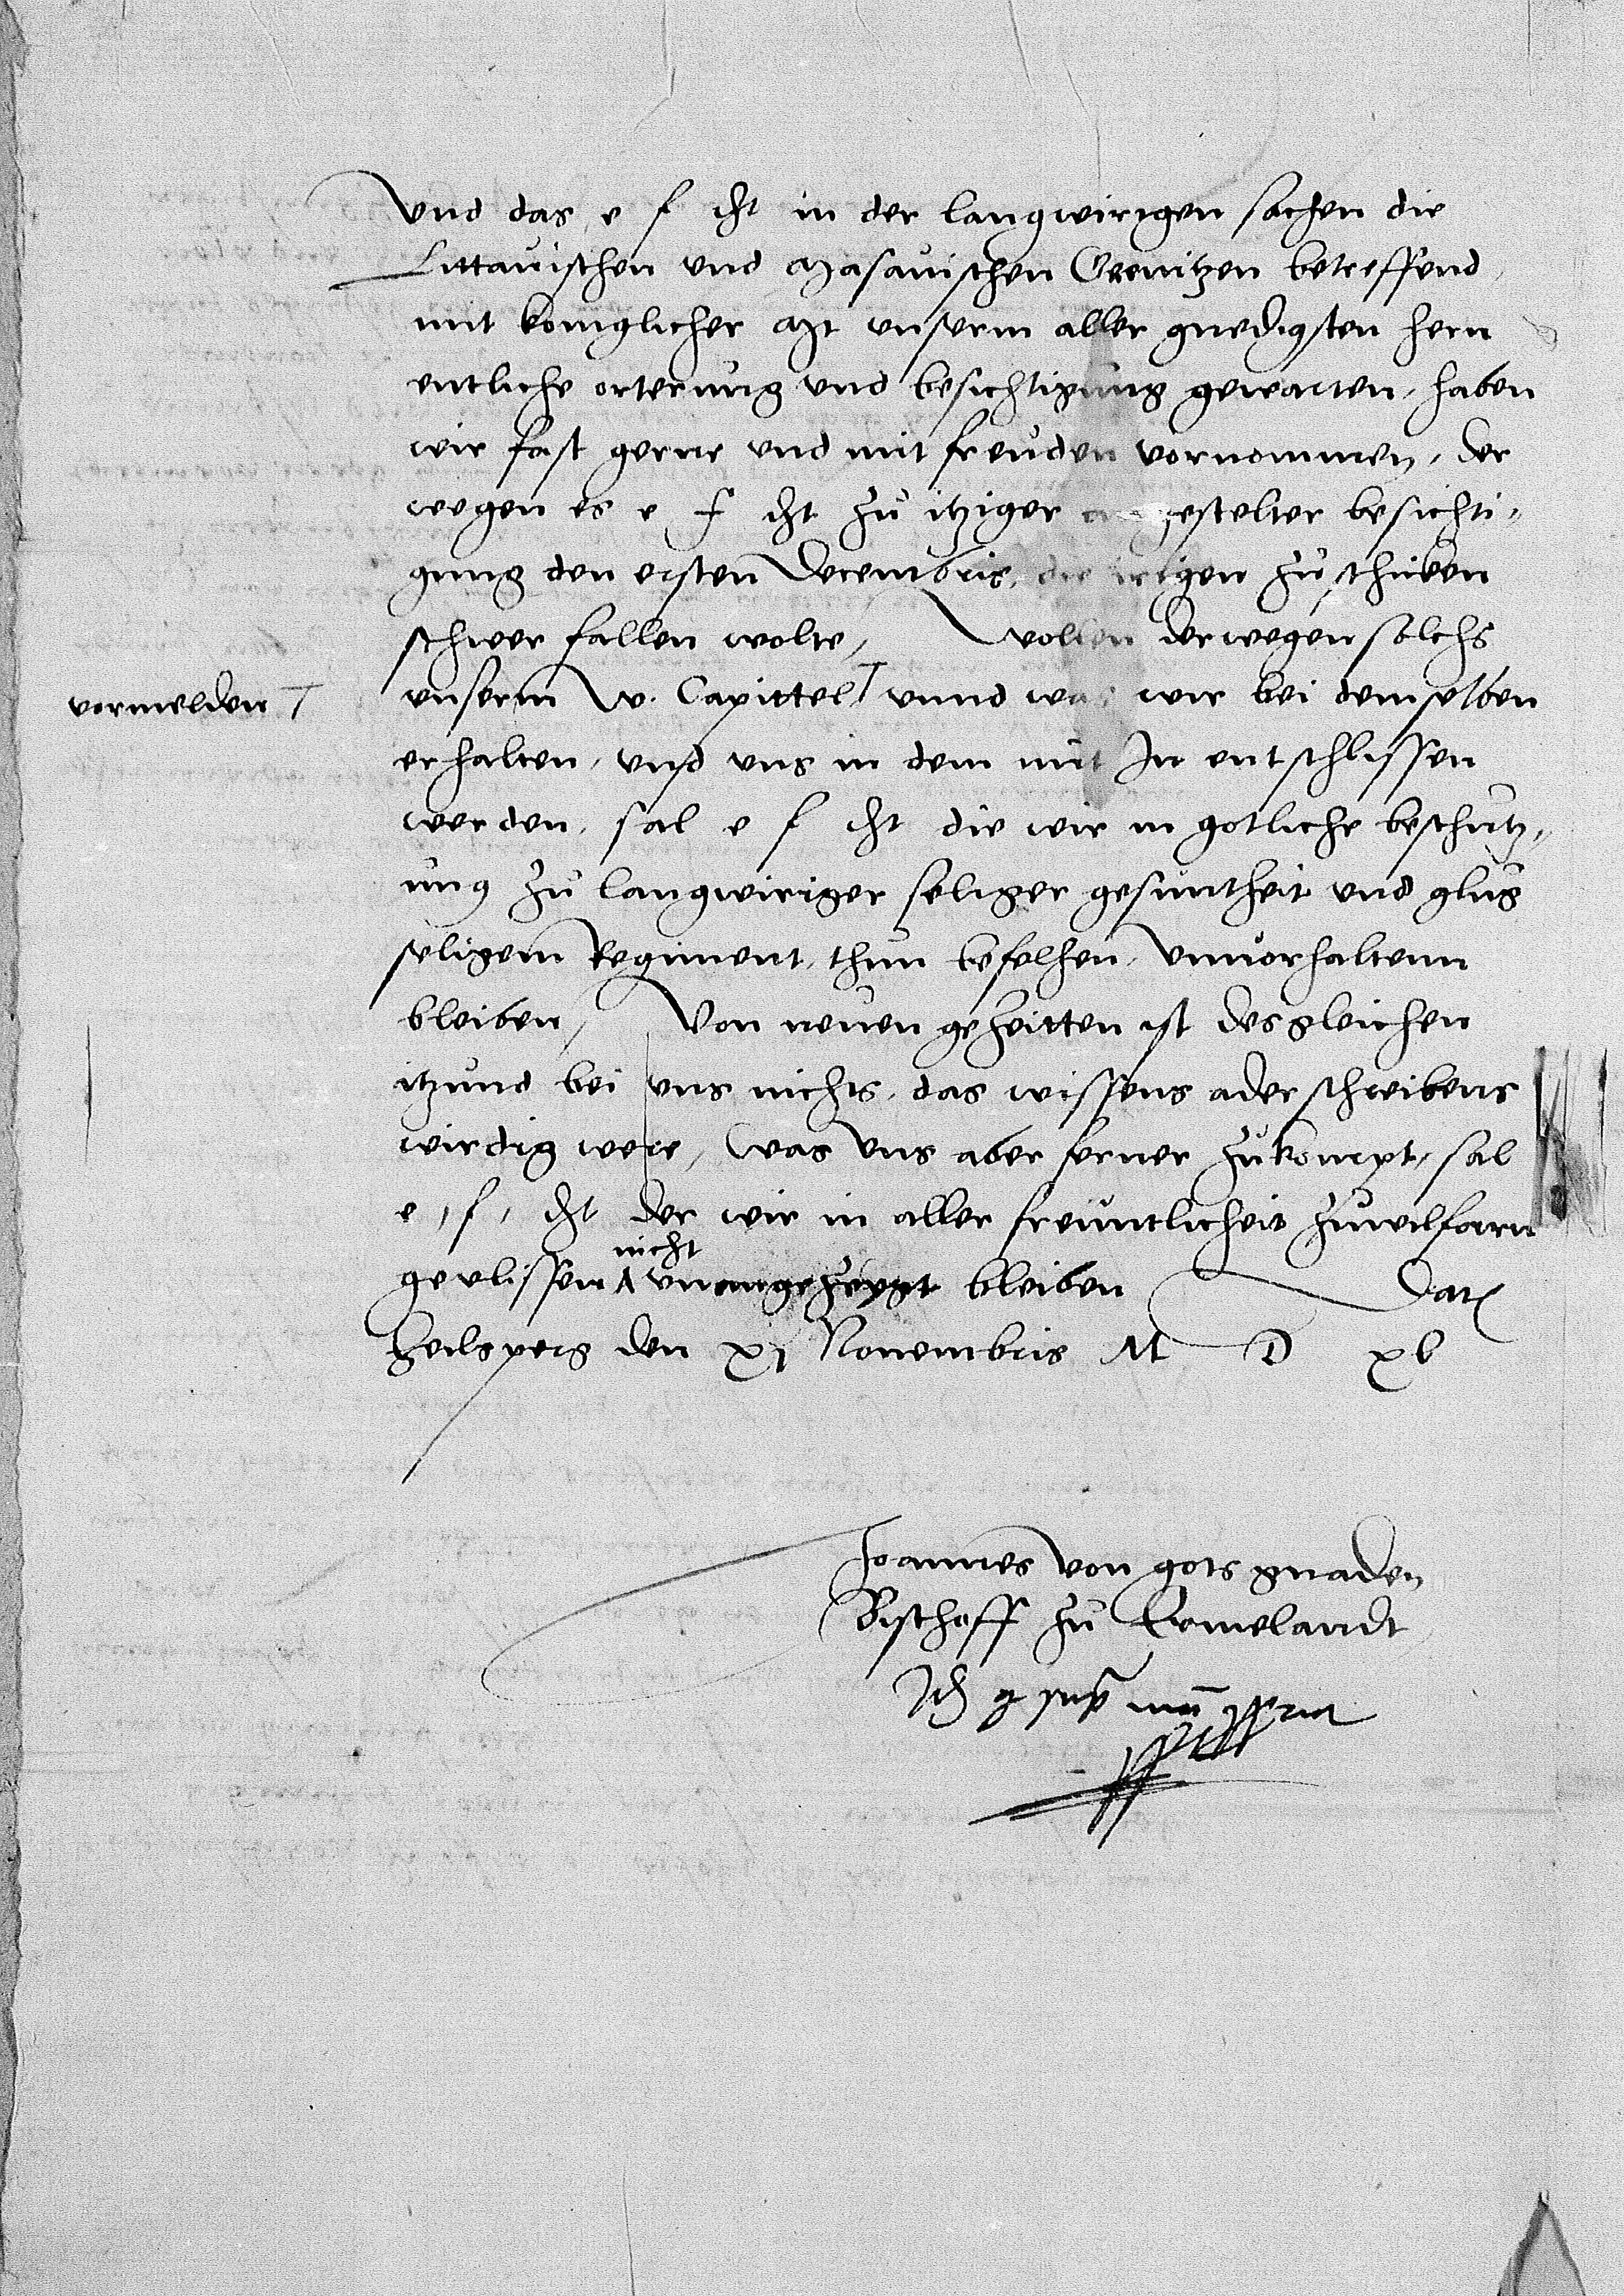 Vnd das e f dht in der langwirigen sachen die
Littauischen vnd Masauischen Grenitzen betreffend,
mit koniglicher Mt vnserm aller gnedigsten hern
entliche orterung vnd besichtigung gewarten, haben
wir fast gerne vnd mit freuden vornommen, der
wegen es e f dht zu itziger angestelter besichti-
gung den ersten Decembris, die irigen zu schicken
schwer fallen wolte, Wollen derwegen solchs
vnserm w. Capittel vnnd was wir bei demselben
vormelden
erhalten, vnd vns in dem mit In entschlissen
werden, sal e f dht die wir in gotliche beschutz-
ung zu langwiriger seliger gesuntheit vnd glug
seligem Regiment, thun befelhen, vnuorhaltenn
bleiben, Von neuen gezeitten ist desgleichen
itzund bei vns nichts, das wissens ader schreibens
wirdig were, Was vns aber ferner zukompt, sal
e, f, dht der wir in aller freuntlicheit zuwilfarn
nicht
geulissen bleiben Dat
Heilsperg den xj Nouembris M D xl
Joannes von gots gnaden
Bischoff zu Ermelandt